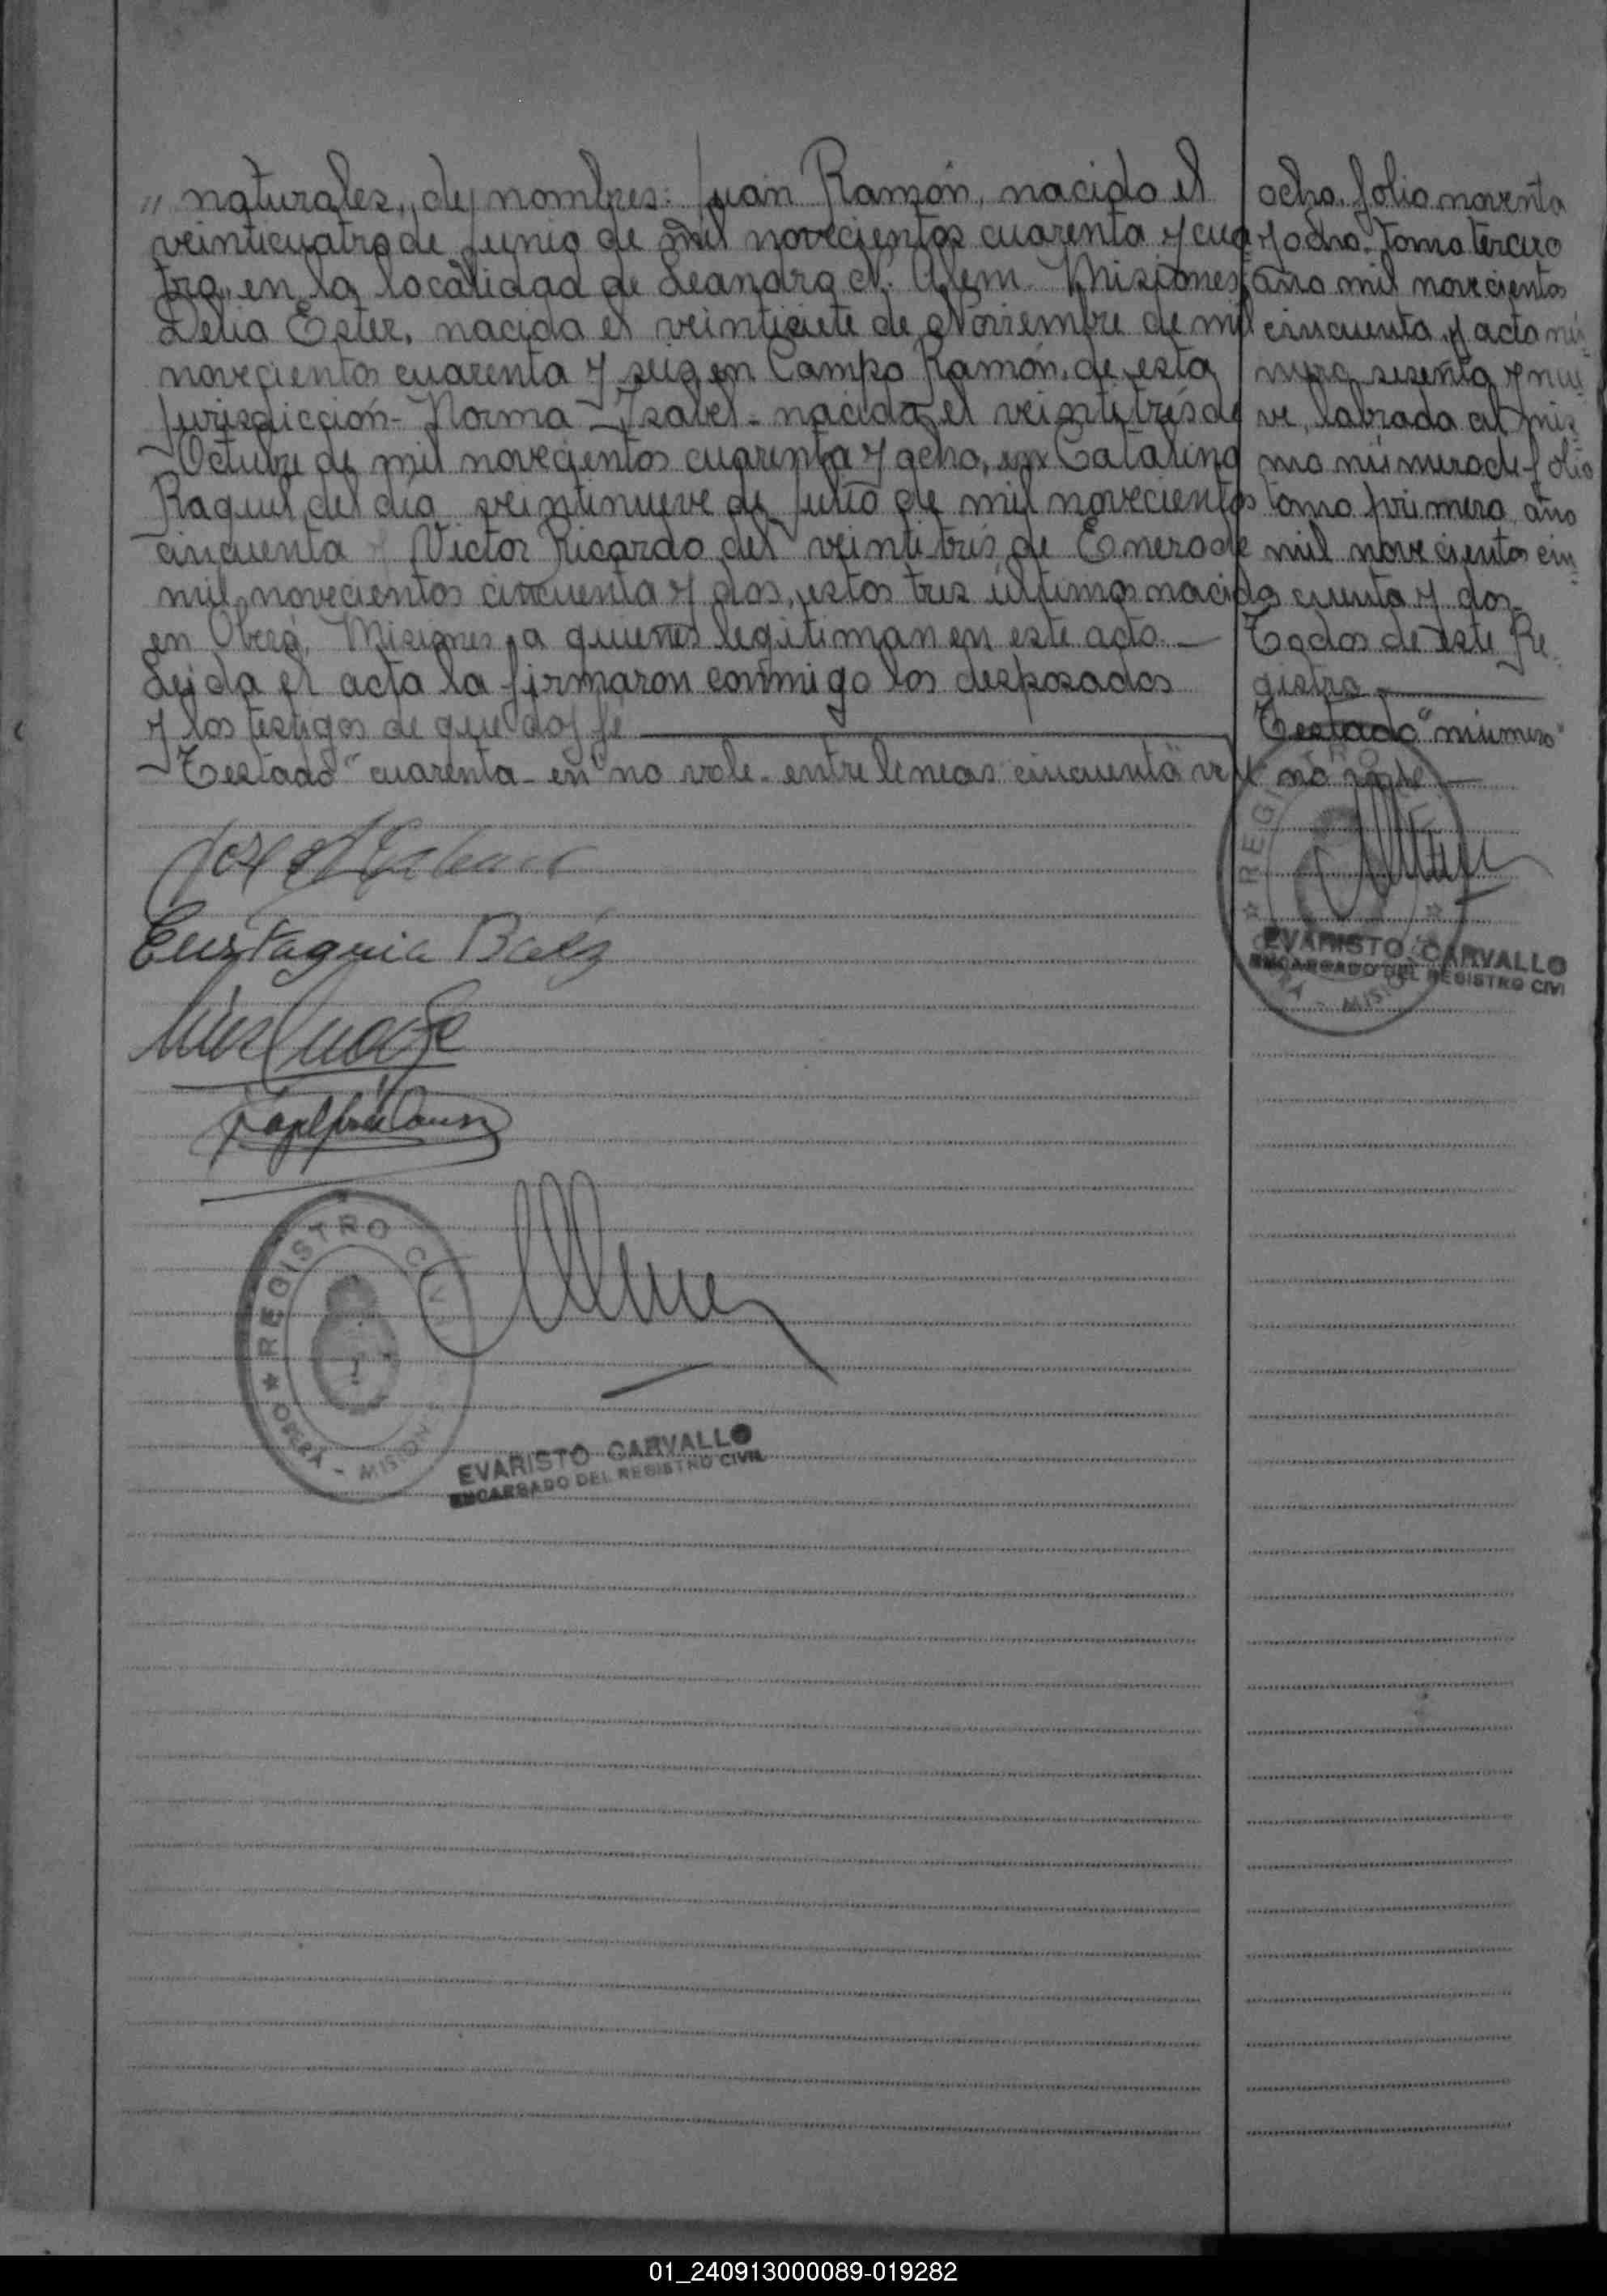 " naturales, de nombres: Juan Ramón, nacido el
veinticuatro de Junio de mil novecientos cuarenta y cua
tro, en la localidad de Leandro N. Alem - Misiones,
Delia Ester, nacida el veintisiete de Noviembre de mil
novecientos cuarenta y seis en Campo Ramón, de esta
Jurisdicción - Norma - Isabel - nacida el veintitrés de
Octubre de mil novecientos cuarenta y ocho, en Catalina
Raquel del día veintinueve de Julio de mil novecientos
cincuenta y Victor Ricardo del veintitrés de Enero de
mil novecientos cincuenta y dos, estos tres últimos nacidos
en Oberá, Misiones, a quienes legitiman en este acto. —
Leída el acta la firmaron conmigo los desposados
y los testigos de que doy fé
Testado "cuarenta - en" no vale - entre lineas "cincuenta" vale
Eustaquia Baez
REGISTRO CIVIL
OBERA - MISIONES
EVARISTO CARVALLO
ENCARGADO DEL REGISTRO CIVIL
ocho. folio noventa
y ocho. Tomo tercero
año mil novecientos
cincuenta y acta nú-
mero sesenta y nue-
ve, labrada al mis-
mo número de folio
tomo primero año
mil novecientos cin-
cuenta y dos.
Todos de este Re-
gistro.
Testado "número"
no vale
REGISTRO
OBERA - MISIONES
EVARISTO CARVALLO
ENCARGADO DEL REGISTRO CIVI
01_240913000089-019282